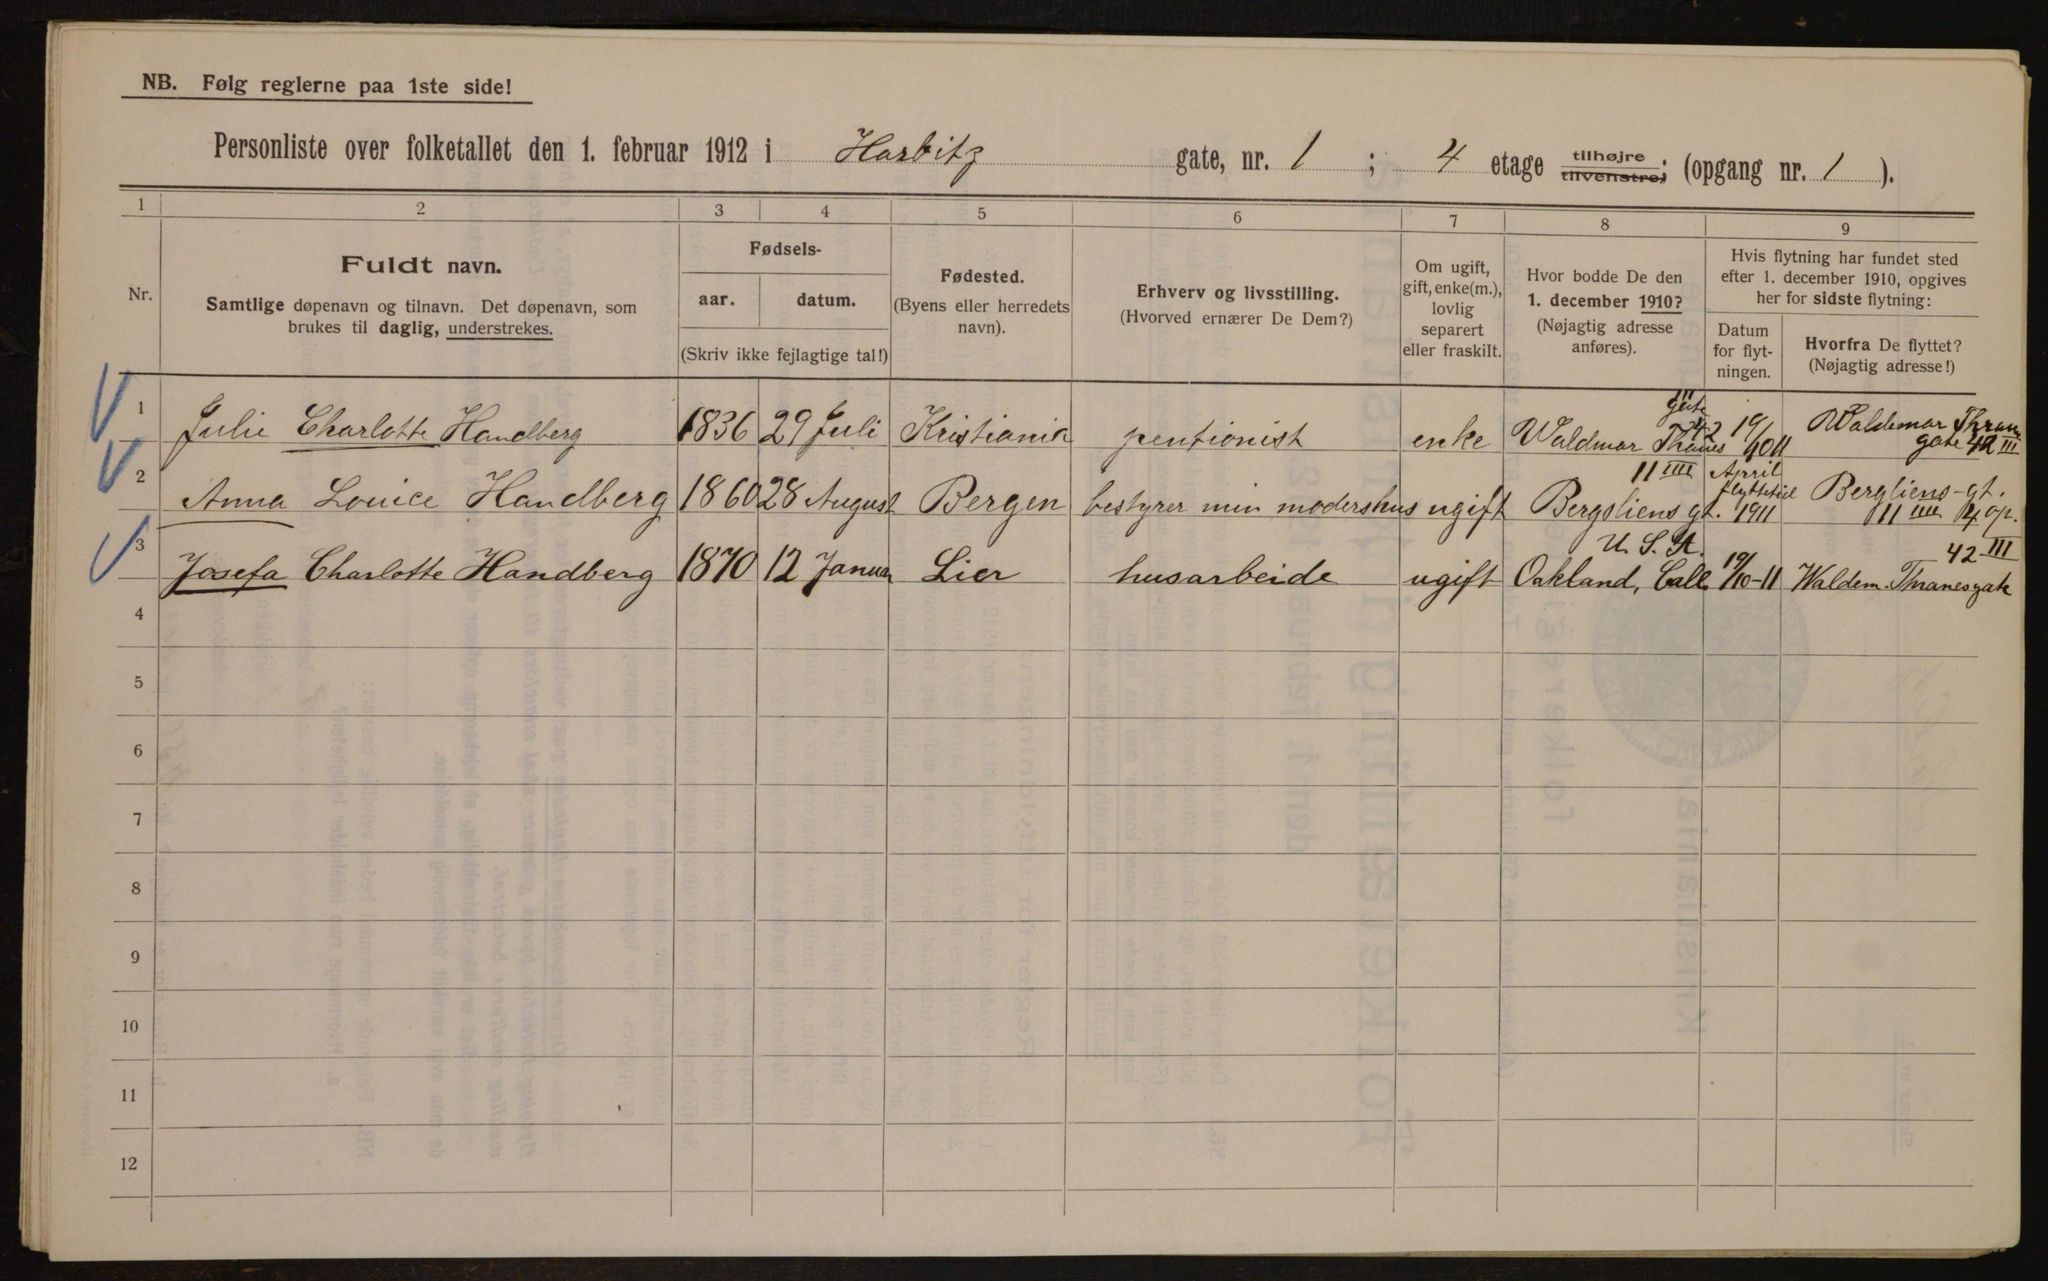 NB. Følg reglerne paa 1ste side!
Personliste over folketallet den 1. februar 1912 i Harbitz gate, nr. 1 ; 4 etage tilhøjre tilvenstre; (opgang nr. 1 ).
1 2 3 4 5 6 7 8 9
Nr.
Fuldt navn.
Samtlige døpenavn og tilnavn. Det døpenavn, som
brukes til daglig, understrekes.
Fødsels-
aar. datum.
(Skriv ikke fejlagtige tal!)
Fødested.
(Byens eller herredets
navn).
Erhverv og livsstilling.
(Hvorved ernærer De Dem?)
Om ugift,
gift, enke(m.),
lovlig
separert
eller fraskilt.
Hvor bodde De den
1. december 1910?
(Nøjagtig adresse
anføres).
Hvis flytning har fundet sted
efter 1. december 1910, opgives
her for sidste flytning:
Datum
for flyt-
ningen.
Hvorfra De flyttet?
(Nøjagtig adresse!)
1 Julie Charlotte Handberg 1836 29 Juli Kristiania pentionist enke Waldmar Thranes gate 42 III 19/10 11 Waldemar Thranes gate 42 III
2 Anna Louice Handberg 1860 28 August Bergen bestyrer min moders hus ugift Bergsliens gt. 11 IIII April flyttetid 1911 Bergliens-gt. 11 IIII 4 op.
3 Josefa Charlotte Handberg 1870 12 Januar Lier husarbeide ugift U. S. A. Oakland, Call. 19/10-11 Waldem. Thranesgate 42 III
4
5
6
7
8
9
10
11
12